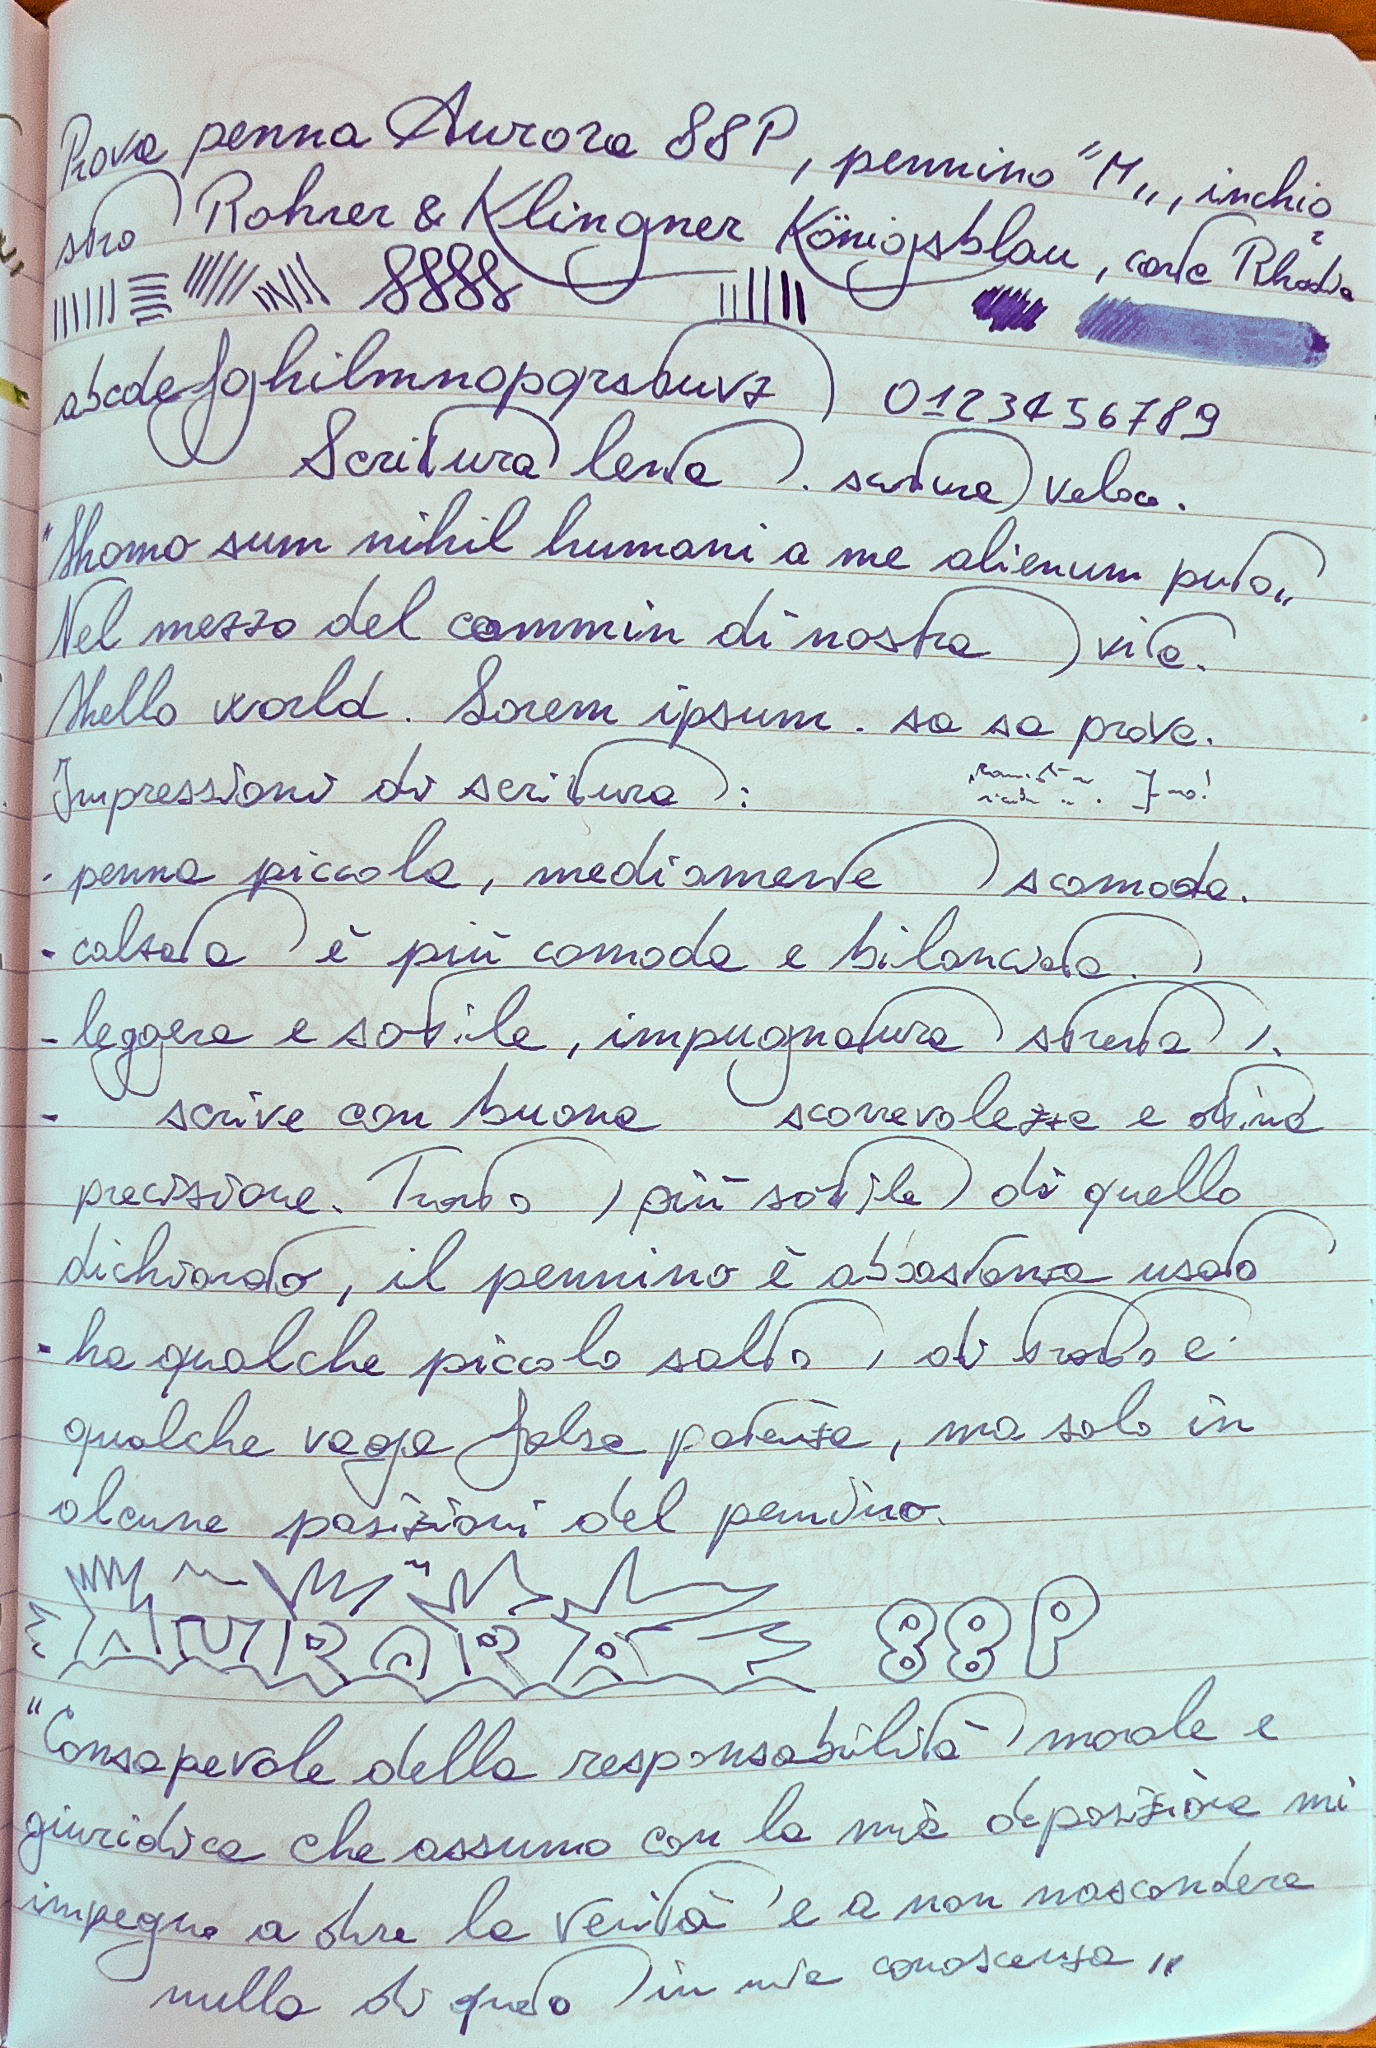 Prova penna Aurora 88P, pennino "M„, inchio
stro Rohrer & Klingner Königsblau, carta Rhodia
abcdefghilmnopqrstuvz 0123456789
Scrittura lenta. scrittura veloce.
"Homo sum nihil humani a me alienum puto„
Nel mezzo del cammin di nostra vita.
Hello world. Lorem ipsum. sa sa prova.
Impressioni di scrittura: no!
- penna piccola, mediamente scomoda.
- calzata è più comoda e bilanciata.
- leggera e sottile, impugnatura stretta.
- scrive con buona scorrevolezza e ottima
precisione. Tratto più sottile di quello
dichiarato, il pennino è abbastanza usato
- ha qualche piccolo salto di tratto e
qualche vaga falsa partenza, ma solo in
alcune posizioni del pennino.
AURORA 88P
"Consapevole della responsabilità morale e
giuridica che assumo con la mia deposizione mi
impegno a dire la verità e a non nascondere
nulla di quanto in mia conoscenza„